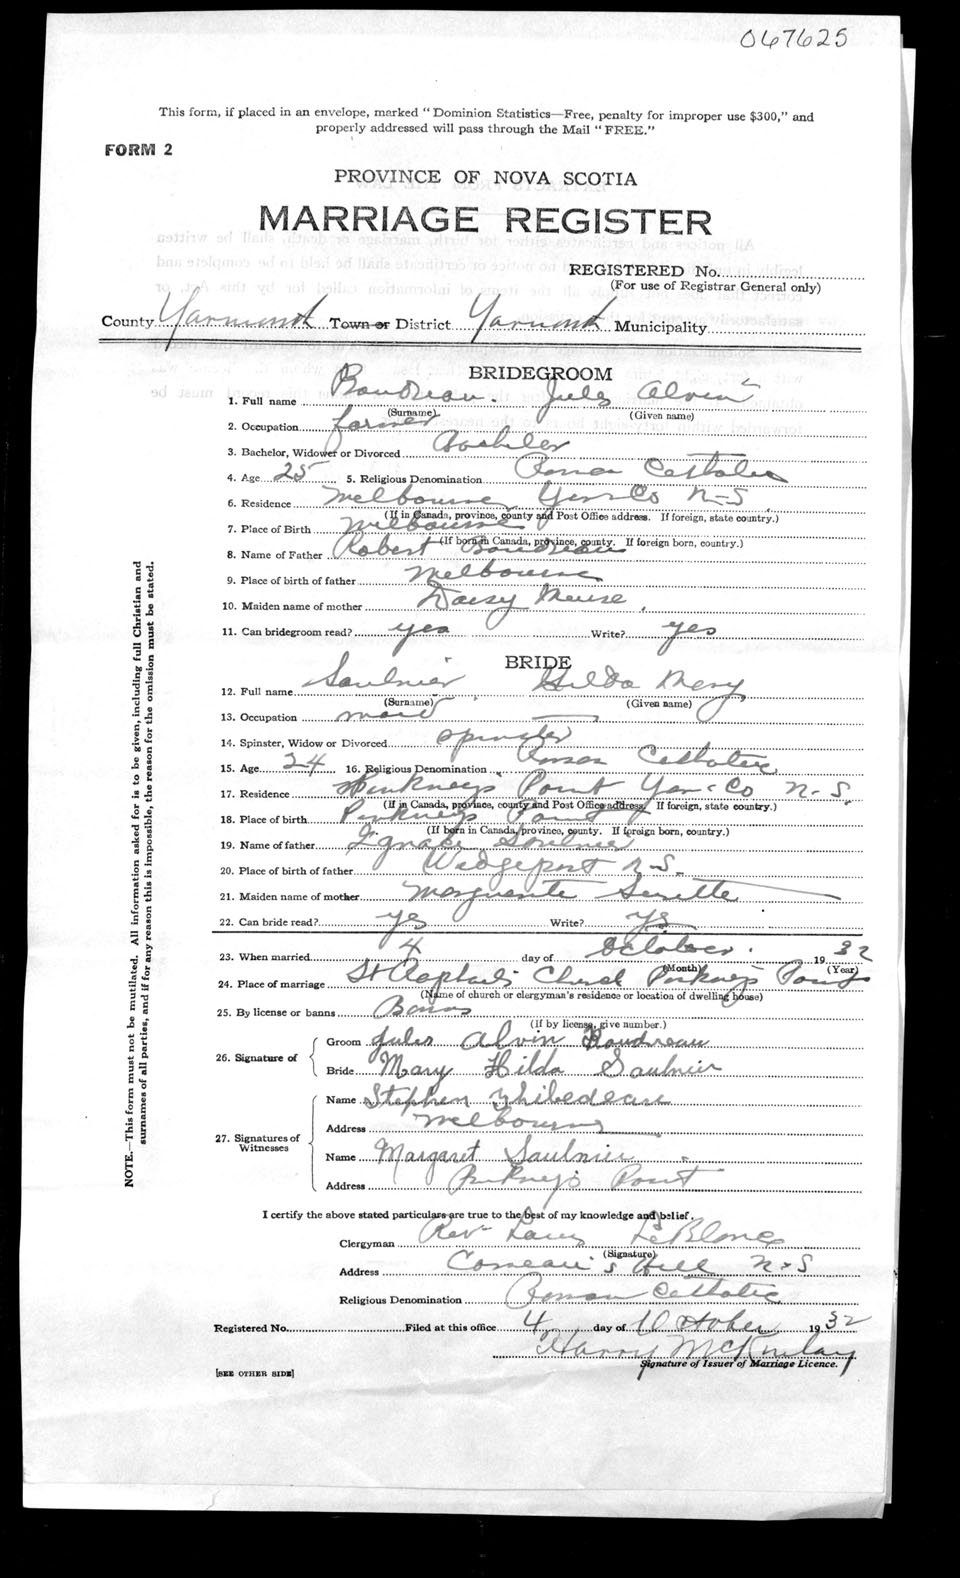 067625
This form, if placed in an envelope, marked "Dominion Statistics—Free, penalty for improper use $300," and
properly addressed will pass through the Mail "FREE."
FORM 2
PROVINCE OF NOVA SCOTIA
MARRIAGE REGISTER
REGISTERED No.
(For use of Registrar General only)
County Yarmouth Town or District Yarmouth Municipality
BRIDEGROOM
1. Full name Boudreau. Jules Alvin
(Surname) (Given name)
2. Occupation farmer
3. Bachelor, Widower or Divorced Bachelor
4. Age 25 5. Religious Denomination Roman Catholic
6. Residence Melbourne Yar Co N-S
(If in Canada, province, county and Post Office address. If foreign, state country.)
7. Place of Birth Melbourne
(If born in Canada, province, county. If foreign born, country.)
8. Name of Father Robert Boudreau
9. Place of birth of father Melbourne
10. Maiden name of mother Daisy Meuse
11. Can bridegroom read? yes Write? yes
BRIDE
12. Full name Saulnier Hilda Mary
(Surname) (Given name)
13. Occupation maid
14. Spinster, Widow or Divorced Spinster
15. Age 24 16. Religious Denomination Roman Catholic
17. Residence Pinkneys Point Yar-Co N-S.
(If in Canada, province, county and Post Office address. If foreign, state country.)
18. Place of birth Pinkneys Point
(If born in Canada, province, county. If foreign born, country.)
19. Name of father Ignace Saulnier
20. Place of birth of father Wedgeport N-S.
21. Maiden name of mother Marguerite Surette
22. Can bride read? yes Write? yes
23. When married 4 day of October. 1932
(Month) (Year)
24. Place of marriage St Raphael's Church Pinkney's Point
(Name of church or clergyman's residence or location of dwelling house)
25. By license or banns Banns
(If by license, give number.)
26. Signature of
Groom Jules Alvin Boudreau
Bride Mary Hilda Saulnier
27. Signatures of Witnesses
Name Stephen Thibedeau
Address Melbourne
Name Margaret Saulnier
Address Pinkney's Point
I certify the above stated particulars are true to the best of my knowledge and belief.
Clergyman Rev LeBlanc
(Signature)
Address Comeau's Hill N-S
Religious Denomination Roman Catholic
Registered No. Filed at this office 4 day of October 1932
Harry McKinlay
Signature of Issuer of Marriage Licence.
[SEE OTHER SIDE]
NOTE.—This form must not be mutilated. All information asked for is to be given, including full Christian and
surnames of all parties, and if for any reason this is impossible, the reason for the omission must be stated.